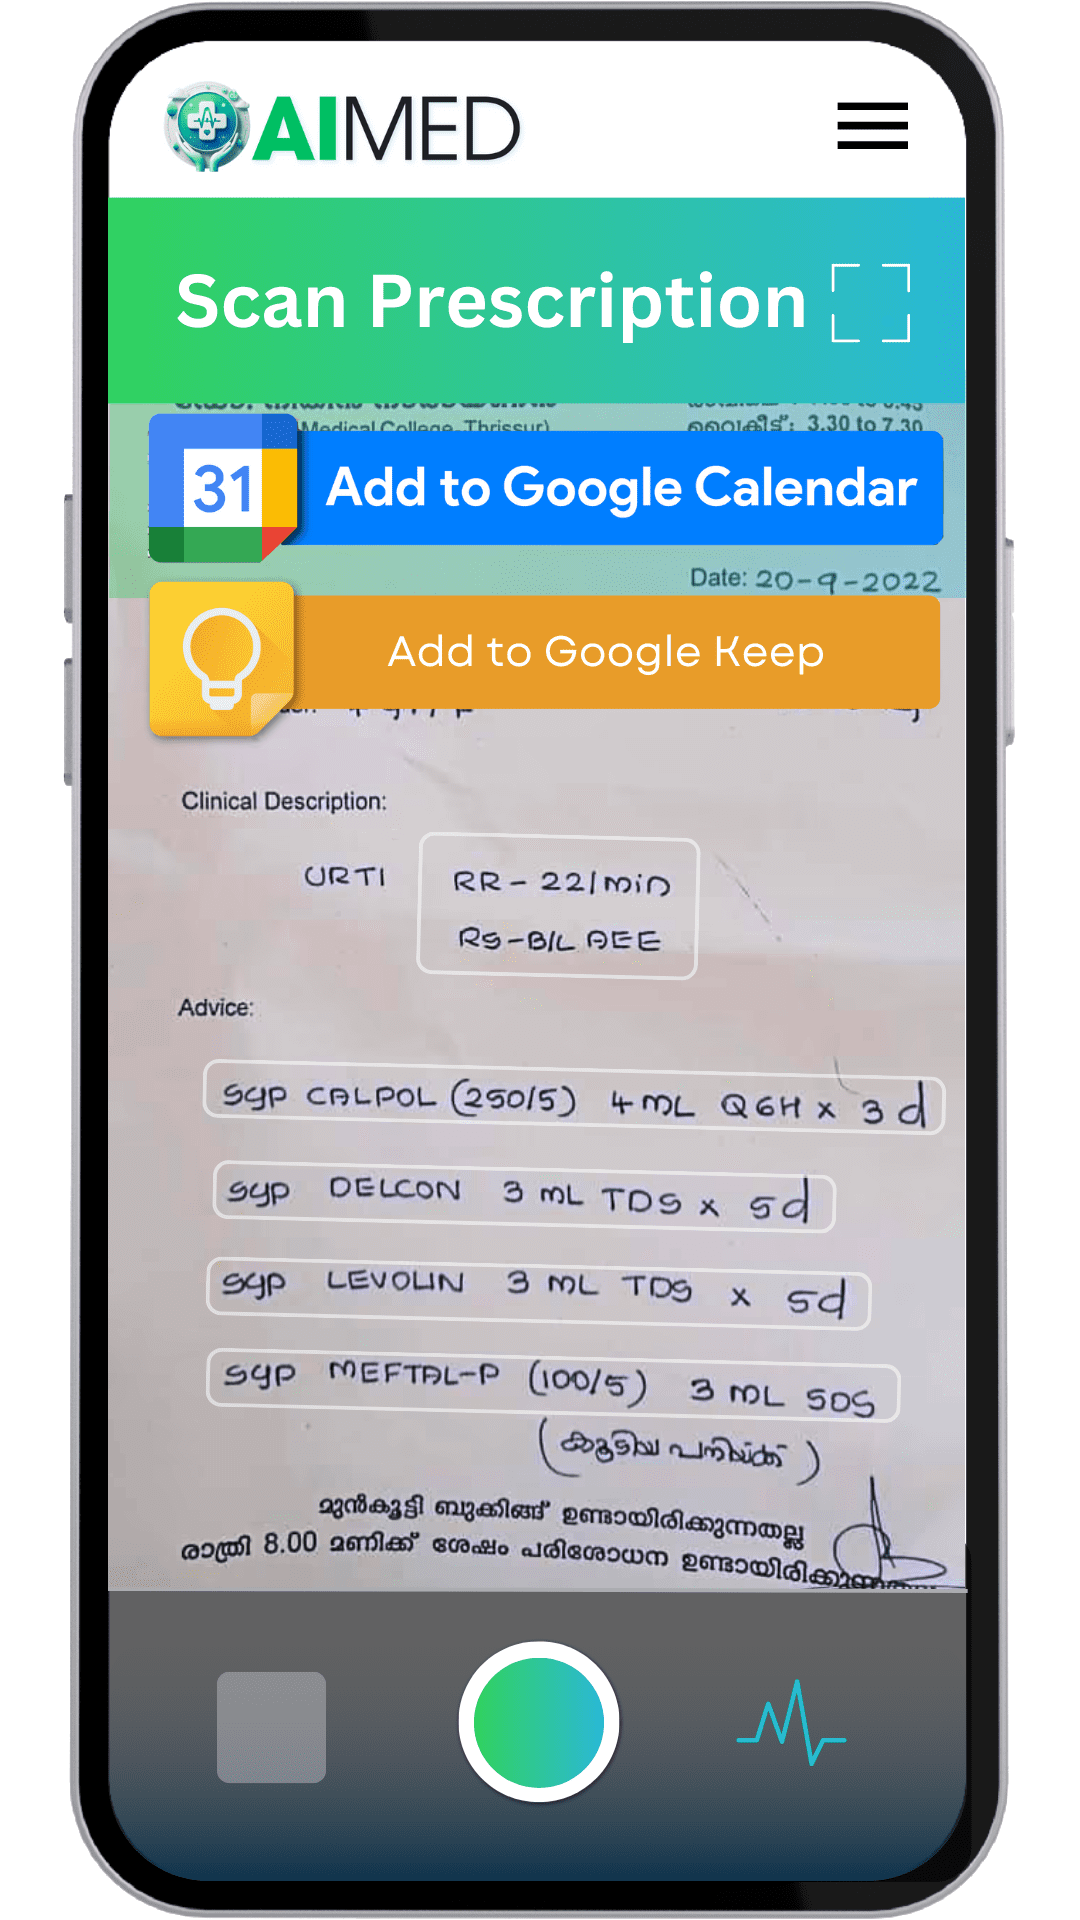 AIMED
Scan Prescription
Medical College, Thrissur)
വൈകീട്ട്: 3.30 to 7.30
31
Add to Google Calendar
Date: 20-9-2022
Add to Google Keep
Clinical Description:
URTI RR - 22/min
RS-B/L AEE
Advice:
Syp CALPOL (250/5) 4 mL Q6H x 3 d
Syp DELCON 3 mL TDS x 5d
Syp LEVOLIN 3 mL TDS x 5d
Syp MEFTAL-P (100/5) 3 mL SOS
(കൂടിയ പനിയ്ക്ക്)
മുൻകൂട്ടി ബുക്കിങ്ങ് ഉണ്ടായിരിക്കുന്നതല്ല
രാത്രി 8.00 മണിക്ക് ശേഷം പരിശോധന